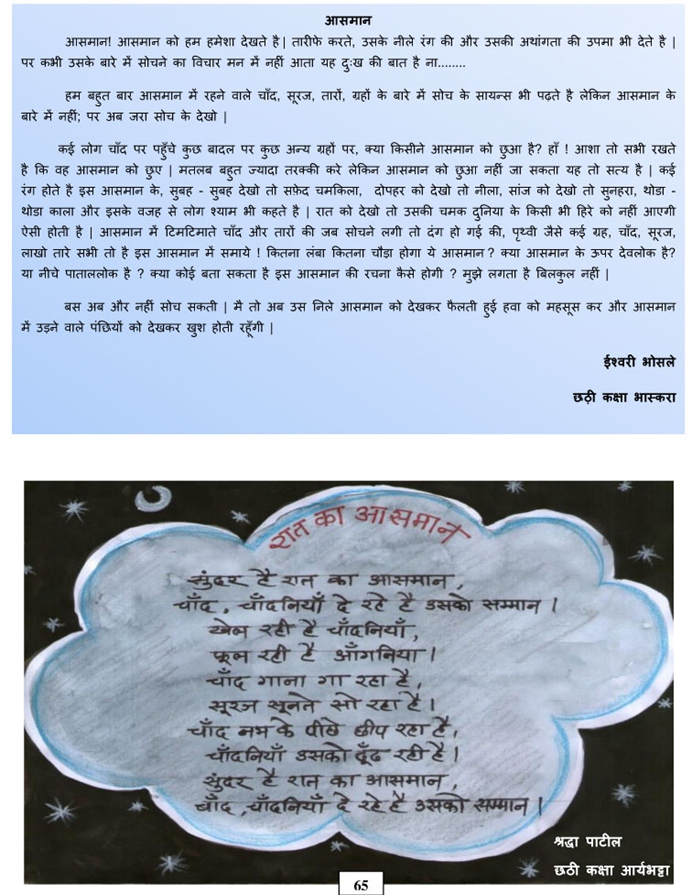 आसमान
आसमान! आसमान को हम हमेशा देखते है| तारीफे करते, उसके नीले रंग की और उसकी अथांगता की उपमा भी देते है |
पर कभी उसके बारे में सोचने का विचार मन में नहीं आता यह दुःख की बात है ना........
हम बहुत बार आसमान में रहने वाले चाँद, सूरज, तारों, ग्रहों के बारे में सोच के सायन्स भी पढ़ते है लेकिन आसमान के
बारे में नहीं; पर अब जरा सोच के देखो |
कई लोग चाँद पर पहुँचे कुछ बादल पर कुछ अन्य ग्रहों पर, क्या किसीने आसमान को छुआ है? हाँ ! आशा तो सभी रखते
है कि वह आसमान को छुए | मतलब बहुत ज्यादा तरक्की करे लेकिन आसमान को छुआ नहीं जा सकता यह तो सत्य है | कई
रंग होते है इस आसमान के, सुबह - सुबह देखो तो सफ़ेद चमकिला, दोपहर को देखो तो नीला, सांज को देखो तो सुनहरा, थोडा -
थोडा काला और इसके वजह से लोग श्याम भी कहते है | रात को देखो तो उसकी चमक दुनिया के किसी भी हिरे को नहीं आएगी
ऐसी होती है | आसमान में टिमटिमाते चाँद और तारों की जब सोचने लगी तो दंग हो गई की, पृथ्वी जैसे कई ग्रह, चाँद, सूरज,
लाखो तारे सभी तो है इस आसमान में समाये ! कितना लंबा कितना चौड़ा होगा ये आसमान ? क्या आसमान के ऊपर देवलोक है?
या नीचे पाताललोक है ? क्या कोई बता सकता है इस आसमान की रचना कैसे होगी ? मुझे लगता है बिलकुल नहीं |
बस अब और नहीं सोच सकती | मै तो अब उस निले आसमान को देखकर फैलती हुई हवा को महसूस कर और आसमान
में उड़ने वाले पंछियों को देखकर खुश होती रहूँगी |
ईश्वरी भोसले
छठी कक्षा भास्करा
रात का आसमान
सुंदर है रात का आसमान,
चाँद, चाँदनियाँ दे रहे है उसको सम्मान।
खेल रही है चाँदनियाँ,
फूल रही है आँगनिया।
चाँद गाना गा रहा है,
सूरज सुनते सो रहा है।
चाँद नभ के पीछे छीप रहा है,
चाँदनियाँ उसको ढूँढ रही है।
सुंदर है रात का आसमान,
चाँद, चाँदनियाँ दे रहे है उसको सम्मान।
श्रद्धा पाटील
छठी कक्षा आर्यभट्टा
65